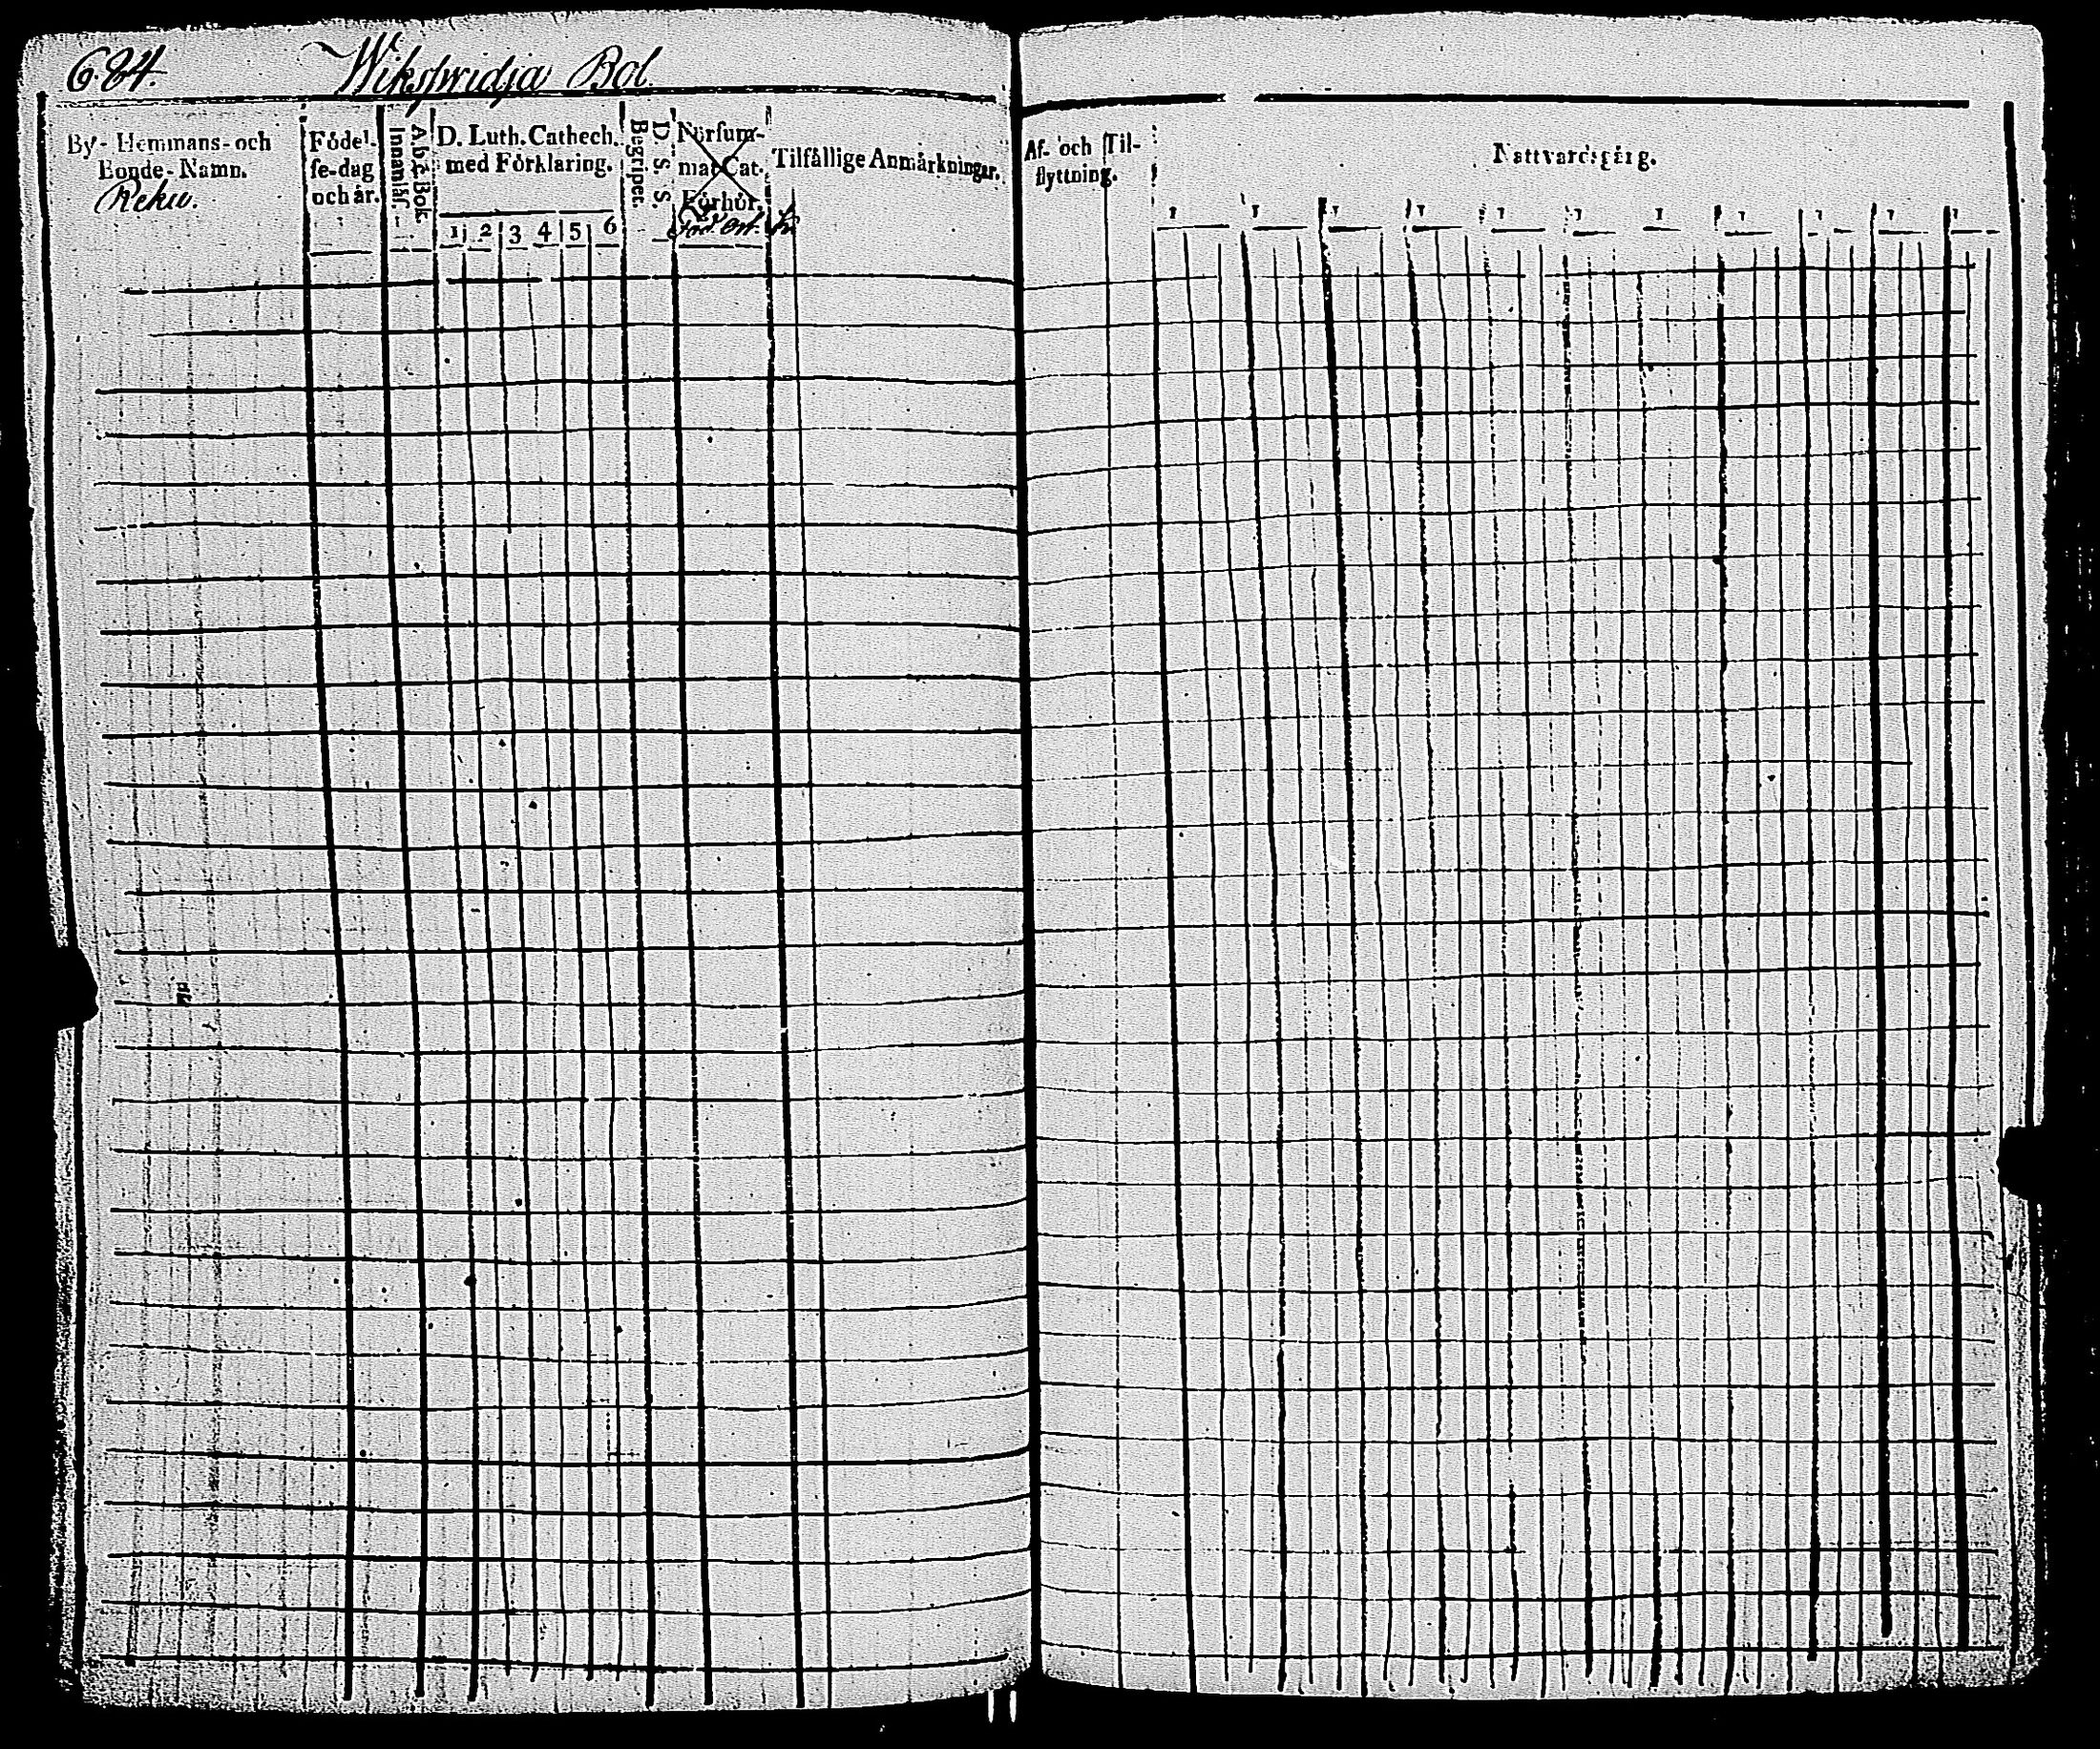 684. Wiksfwidja Bol.
By- Hemmans- och
Bonde- Namn.
Reku.
Födel-
se-dag
och år.
A.b.c Bok.
Innanläs.
D. Luth. Cathech.
med Förklaring.
1 2 3 4 5 6
D. S. S.
Begriper.
Försum-
mat Cat.
Förhör.
Född ort.
Tilfällige Anmärkningar.
Af- och Til-
flyttning.
Nattvardsgång.
1 1 1 1 1 1 1 1 1 1 1